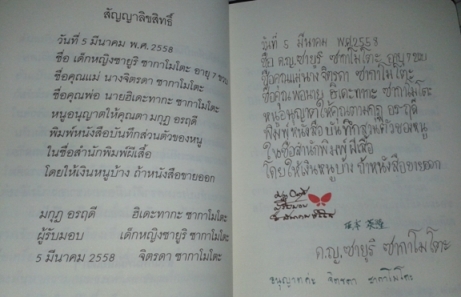 สัญญาลิขสิทธิ์
วันที่ 5 มีนาคม พ.ศ.2558
ชื่อ เด็กหญิงซายูริ ซากาโมโตะ อายุ 7 ขวบ
ชื่อคุณแม่ นางจิตรดา ซากาโมโตะ
ชื่อคุณพ่อ นายฮิเดะทากะ ซากาโมโตะ
หนูอนุญาตให้คุณตา มกุฎ อรฤดี
พิมพ์หนังสือบันทึกส่วนตัวของหนู
ในชื่อสำนักพิมพ์ผีเสื้อ
โดยให้เงินหนูบ้าง ถ้าหนังสือขายออก
มกุฎ อรฤดี ฮิเดะทากะ ซากาโมโตะ
ผู้รับมอบ เด็กหญิงซายูริ ซากาโมโตะ
5 มีนาคม 2558 จิตรดา ซากาโมโตะ
วันที่ 5 มีนาคม พ.ศ.2558
ชื่อ ด.ญ.ซายูริ ซากาโมโตะ อายุ 7 ขวบ
ชื่อคุณแม่ นางจิตรดา ซากาโมโตะ
ชื่อคุณพ่อ นายฮิเดะทากะ ซากาโมโตะ
หนูอนุญาตให้คุณตามกุฎ อรฤดี
พิมพ์หนังสือบันทึกส่วนตัวของหนู
ในชื่อสำนักพิมพ์ผีเสื้อ
โดยให้เงินหนูบ้าง ถ้าหนังสือขายออก
ด.ญ.ซายูริ ซากาโมโตะ
จิตรดา ซากาโมโตะ